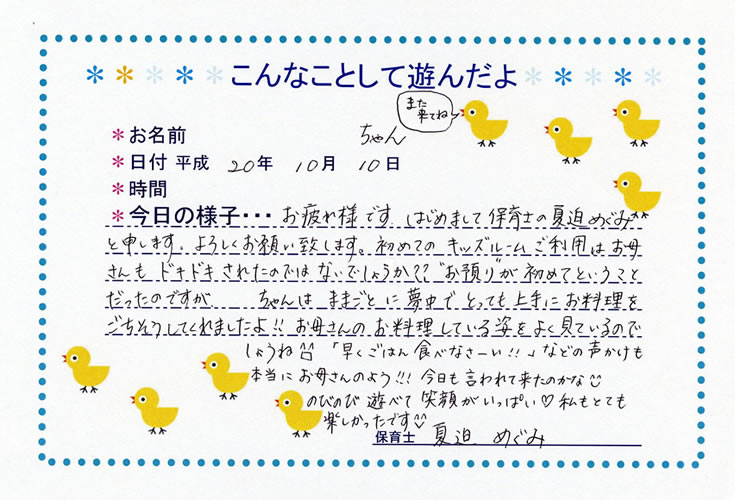 ＊＊＊＊＊こんなことして遊んだよ＊＊＊＊＊
また
来てね
＊お名前　ちゃん
＊日付 平成 20年 10月 10日
＊時間
＊今日の様子・・・ お疲れ様です。はじめまして保育士の夏迫めぐみ
と申します。よろしくお願い致します。初めてのキッズルームご利用はお母
さんもドキドキされたのではないでしょうか？？“お預り”が初めてということ
だったのですが　ちゃんはままごとに夢中でとっても上手にお料理を
ごちそうしてくれましたよ!! お母さんのお料理している姿をよく見ているので
しょうね 「早くごはん食べなさーい!!」などの声かけも
本当にお母さんのよう!!! 今日も言われて来たのかな
のびのび遊べて笑顔がいっぱい♡私もとても
楽しかったです
保育士 夏迫 めぐみ